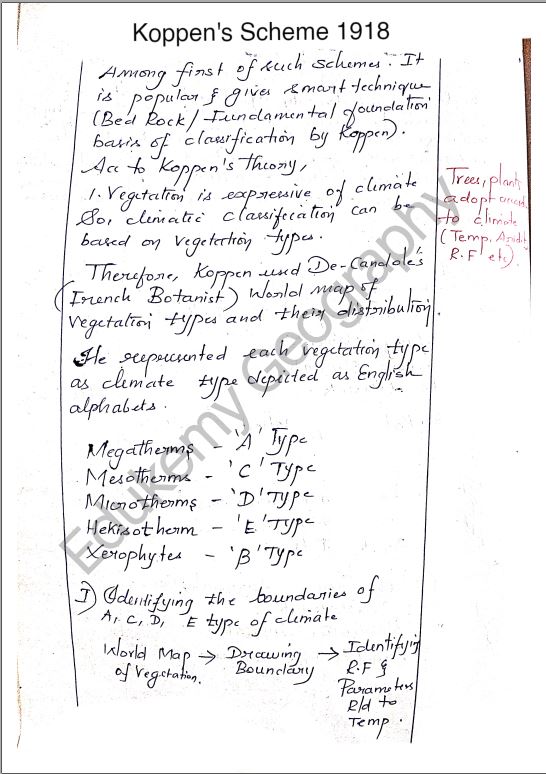 Koppen's Scheme 1918
Among first of such schemes. It
is popular & gives smart technique
(Bed Rock / Fundamental foundation
basis of classification by Koppen).
Acc to Koppen's Theory,
1. Vegetation is expressive of climate
So, climatic classification can be
based on vegetation types.
Trees, plants
adopt
to climate
(Temp,
R.F etc).
Therefore, Koppen used De-Candole's
(French Botanist) World map of
Vegetation types and their distribution.
He represented each vegetation type
as climate type depicted as English
alphabets.
Megatherms - 'A' Type
Mesotherms - 'C' Type
Microtherms - 'D' Type
Hekisotherm - 'E' Type
Xerophytes - 'B' Type
I) Identifying the boundaries of
A, C, D, E type of climate
World Map → Drawing → Identifying
of Vegetation. Boundary R.F &
Parameters
R/d to
Temp.
Edukemy Geography